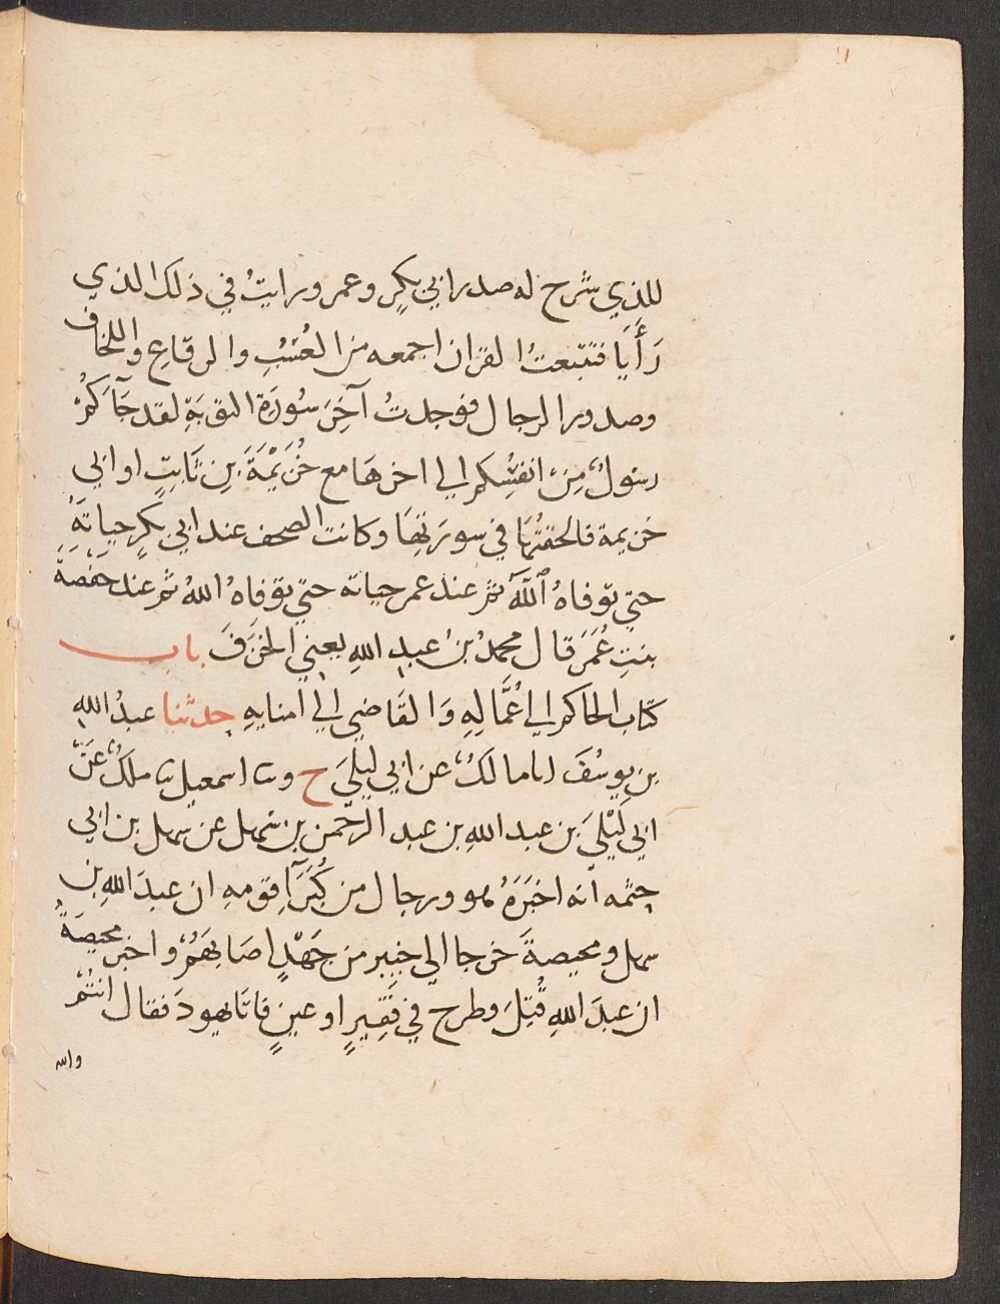 للذي شرح له صدر ابي بكرٍ وعمر ورايتُ في ذلك الذي
رَأَيَا فتتبّعتُ القران اجمعه من العُسُبِ والرقاعِ واللخاف
وصدور الرجال فوجدتُ آخِرَ سُورَةِ التوبَةِ لقد جَآَكُمْ
رسُولٌ مِنْ انفُسِكم الي اخرهَا مع خُزَيْمَةَ بنِ ثَابِتٍ او ابي
خزيمة فالحقتُهَا في سورَتِهَا وكانت الصحف عند ابي بكرٍ حياتَهُ
حتي توفاهُ اللَّهُ ثم عند عمر حياته حتي توفاهُ اللهُ ثم عند حَفْصَةَ
بنتِ عُمَرَ قال محمدُ بنُ عبدِ اللهِ يعني الخزَفَ باب
كتاب الحاكم الي اعُمَّالِهِ وَالقَاضي الي امنايهِ حدثنا عبدُ اللهِ
بن يوسُفَ انا مالكٌ عن ابي ليلَي ح وثنا اسمعيل ثنا ملكٌ عَنْ
ابي لَيْلَي بن عبد اللهِ بن عبد الرحمن بن سَهل عن سهل بن ابي
حثمه انه اخبَرَهُ هو ورجال من كُبَرَآِ قومهِ ان عبدَ اللهِ بن
سهل ومحيصةَ خرجا الي خيبر من جَهْدٍ اصَابَهُمْ واخبر محيصَةُ
ان عبدَ اللهِ قُتِلَ وطرح في فَقِيرٍ او عينٍ فاتا يهودَ فقال انتُمْ
والله